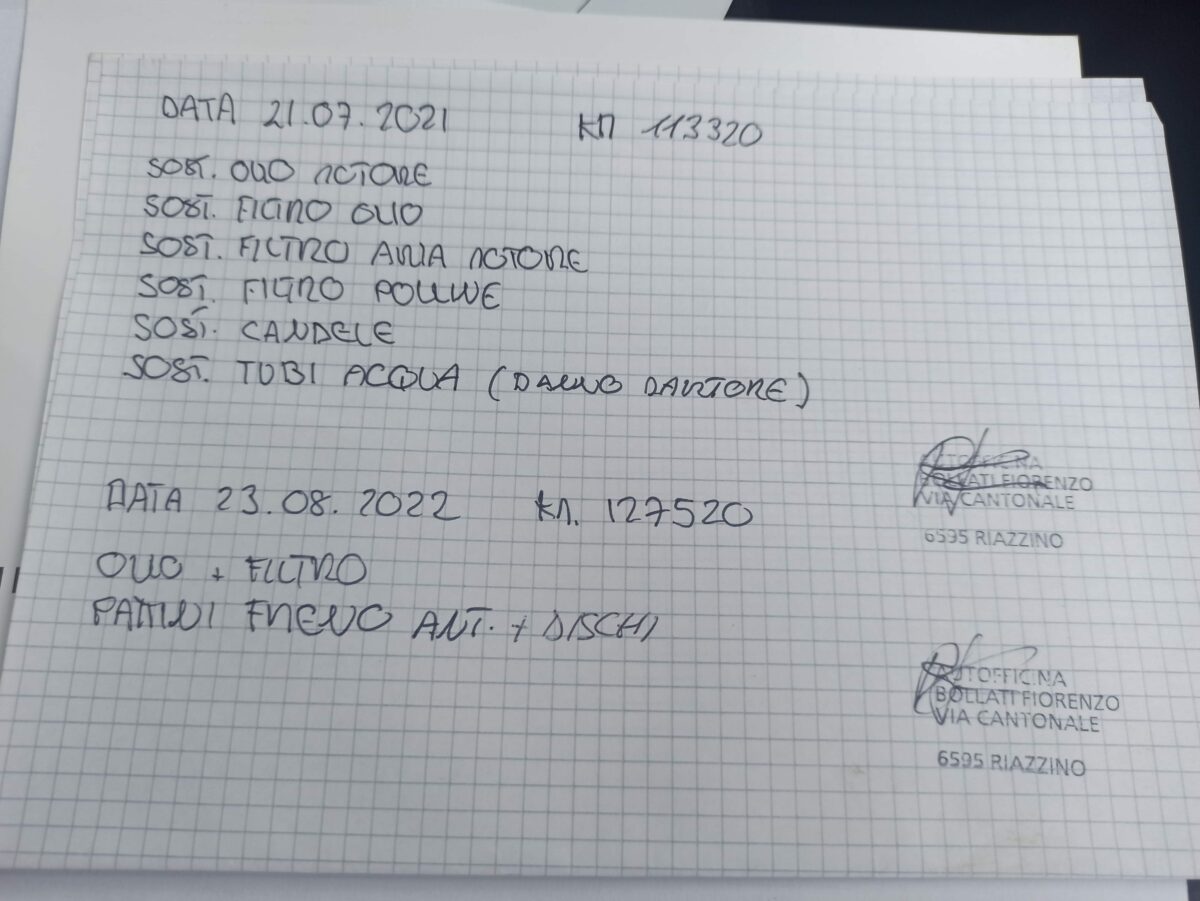 DATA 21.07.2021 KM 113320
SOST. OLIO MOTORE
SOST. FILTRO OLIO
SOST. FILTRO ARIA MOTORE
SOST. FILTRO POLLINE
SOST. CANDELE
SOST. TUBI ACQUA (DANNO MARTORE)
AUTOFFICINA
BOLLATI FIORENZO
VIA CANTONALE
6595 RIAZZINO
DATA 23.08.2022 KM. 127520
OLIO + FILTRO
PATTINI FRENO ANT. + DISCHI
AUTOFFICINA
BOLLATI FIORENZO
VIA CANTONALE
6595 RIAZZINO